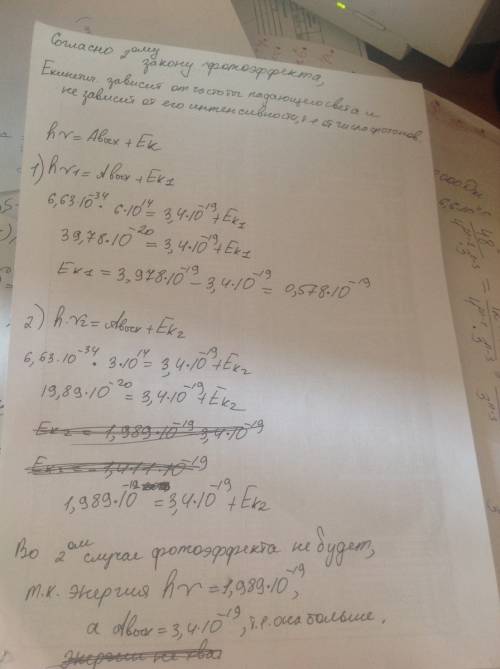 Согласно 2ому
закону фотоэффекта,
Eкинетич. зависит от частоты падающего света и
не зависит от его интенсивности, т.е от числа фотонов.
hν = Aвых + Eк
1) hν₁ = Aвых + Eк₁
6,63·10⁻³⁴ · 6·10¹⁴ = 3,4·10⁻¹⁹ + Eк₁
39,78·10⁻²⁰ = 3,4·10⁻¹⁹ + Eк₁
Eк₁ = 3,978·10⁻¹⁹ − 3,4·10⁻¹⁹ = 0,578·10⁻¹⁹
2) h·ν₂ = Aвых + Eк₂
6,63·10⁻³⁴ · 3·10¹⁴ = 3,4·10⁻¹⁹ + Eк₂
19,89·10⁻²⁰ = 3,4·10⁻¹⁹ + Eк₂
Eк₂ = 1,989·10⁻¹⁹ 3,4·10⁻¹⁹
1,989·10⁻¹⁹ = 3,4·10⁻¹⁹ + Eк₂
Во 2ом случае фотоэффекта не будет,
т.к. энергия hν = 1,989·10⁻¹⁹,
а Aвых = 3,4·10⁻¹⁹, т.е. она больше.